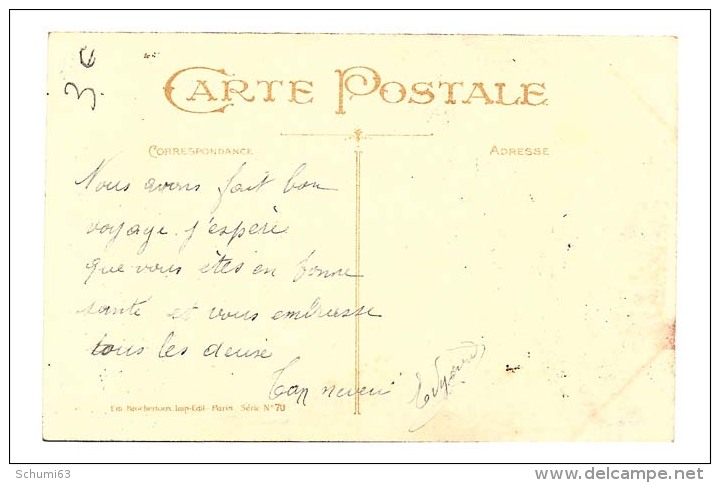 3 €
CARTE POSTALE
CORRESPONDANCE
ADRESSE
Nous avons fait bon
voyage. j'espère
que vous êtes en bonne
santé et vous embrasse
tous les deuxe
neveu
Em. Brocherioux Imp-Edit - Paris Série N° 70
Schumi63
www.delcampe.net